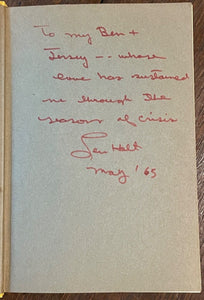 To my Ben +
Jersey -- whose
love has sustained
me through the
seasons of crisis
Len Holt
May '65